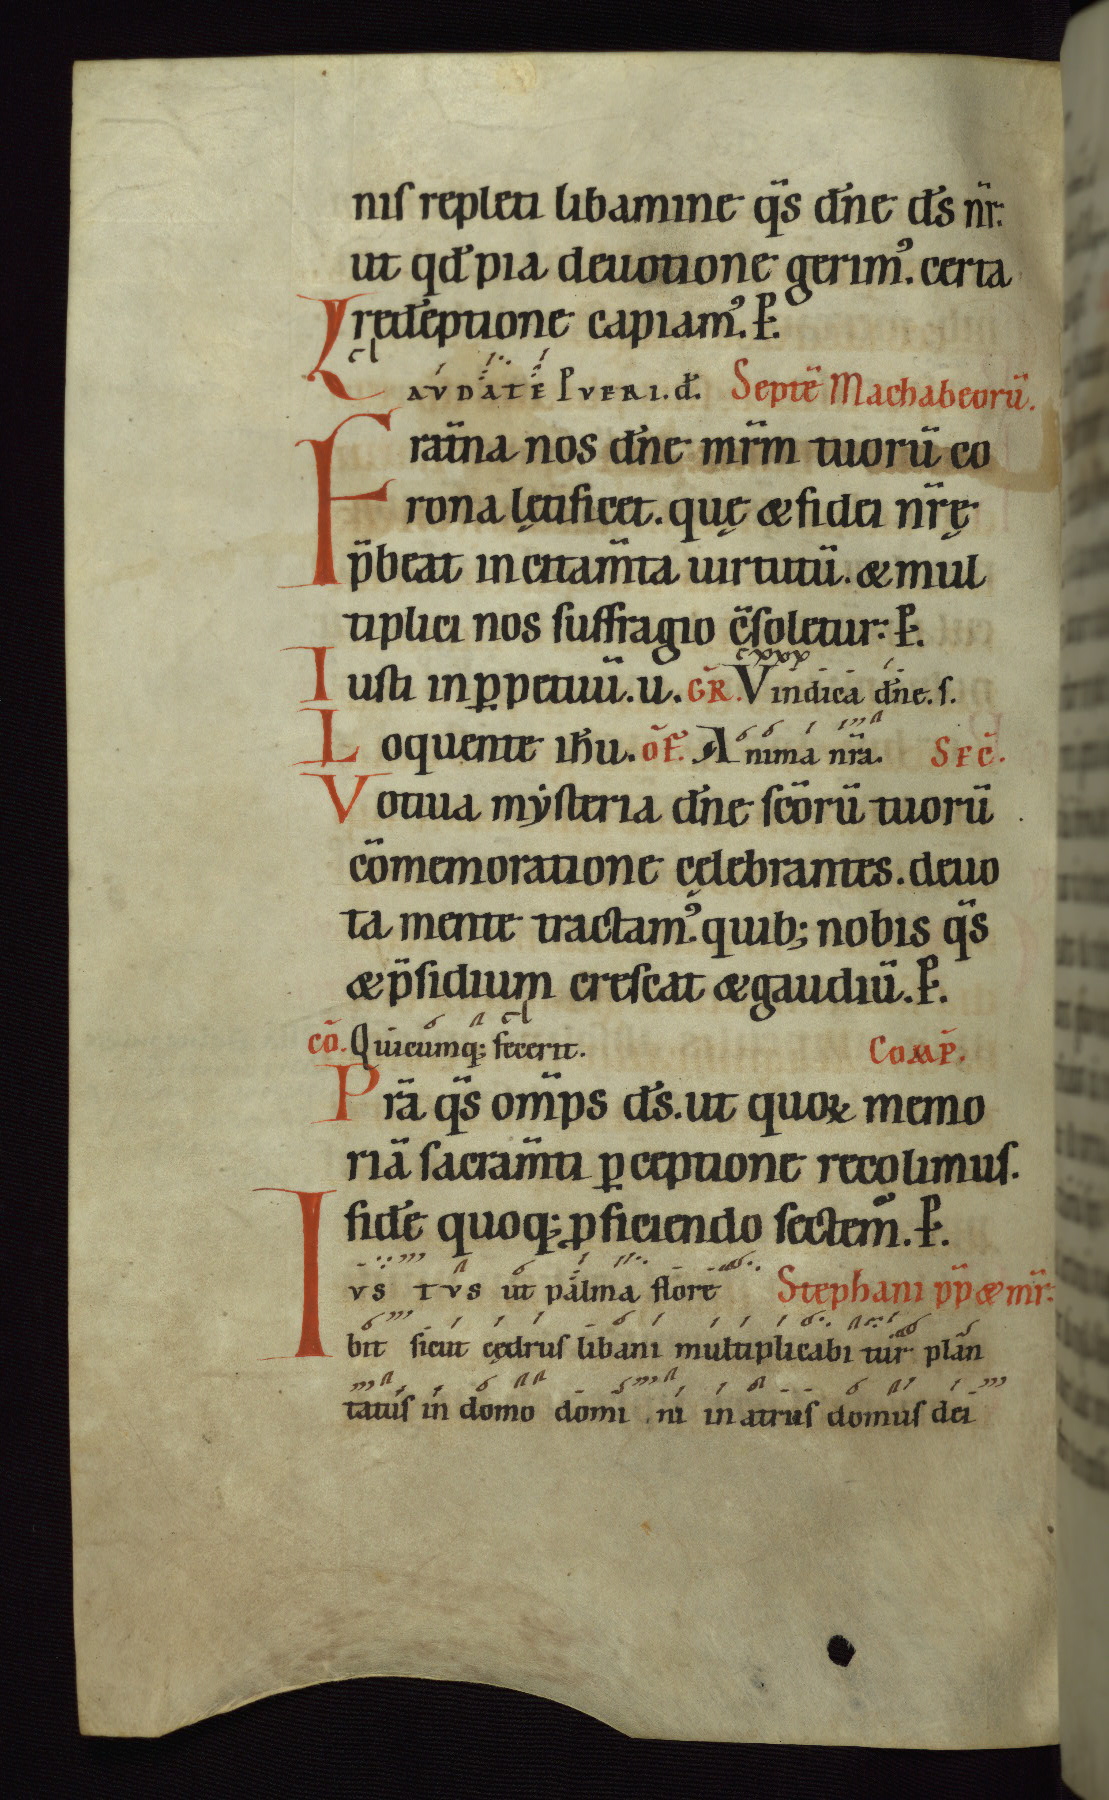 niſ repleti libamine q̄s dn̄e ds̄ nr̄.
ut qd̄ pia deuotione gerim᾽. certa
redēptione capiam᾽. P.
LAVDATE PVERI. d̄. Septē Machabeorū.
Frat̄na nos dn̄e mr̄m tuorū co
rona lętificet. quę & fidei nr̄ę
p̄beat incitam̄ta uirtutū. & mul
tiplici nos ſuffragio c̄ſoletur. P.
Iuſti in ꝑpetuū. u. GR̄. Vindica dn̄e. ſ.
Loquente ih̄u. oF̄. Anima nr̄a. SEC̄.
Votiua mẏſteria dn̄e ſcōrū tuorū
cōmemoratione cęlebrantes. deuo
ta mente tractam᾽. quib; nobis q̄s
& p̄ſidium creſcat & gaudiū. P.
cō. Quicumq; fecerit. COMP̄.
Pr̄a q̄s om̄ps ds̄. ut quoꝝ memo
riā ſacram̄ti ꝑceptione recolimuſ.
fidē quoq; ꝓficiendo ſectem᾽. P.
IVSTVS ut palma flore Stephani pp̄ & mr̄.
bit ſicut cędruſ libani multiplicabitur plan
tatuſ in domo domini in atriiſ domuſ dei